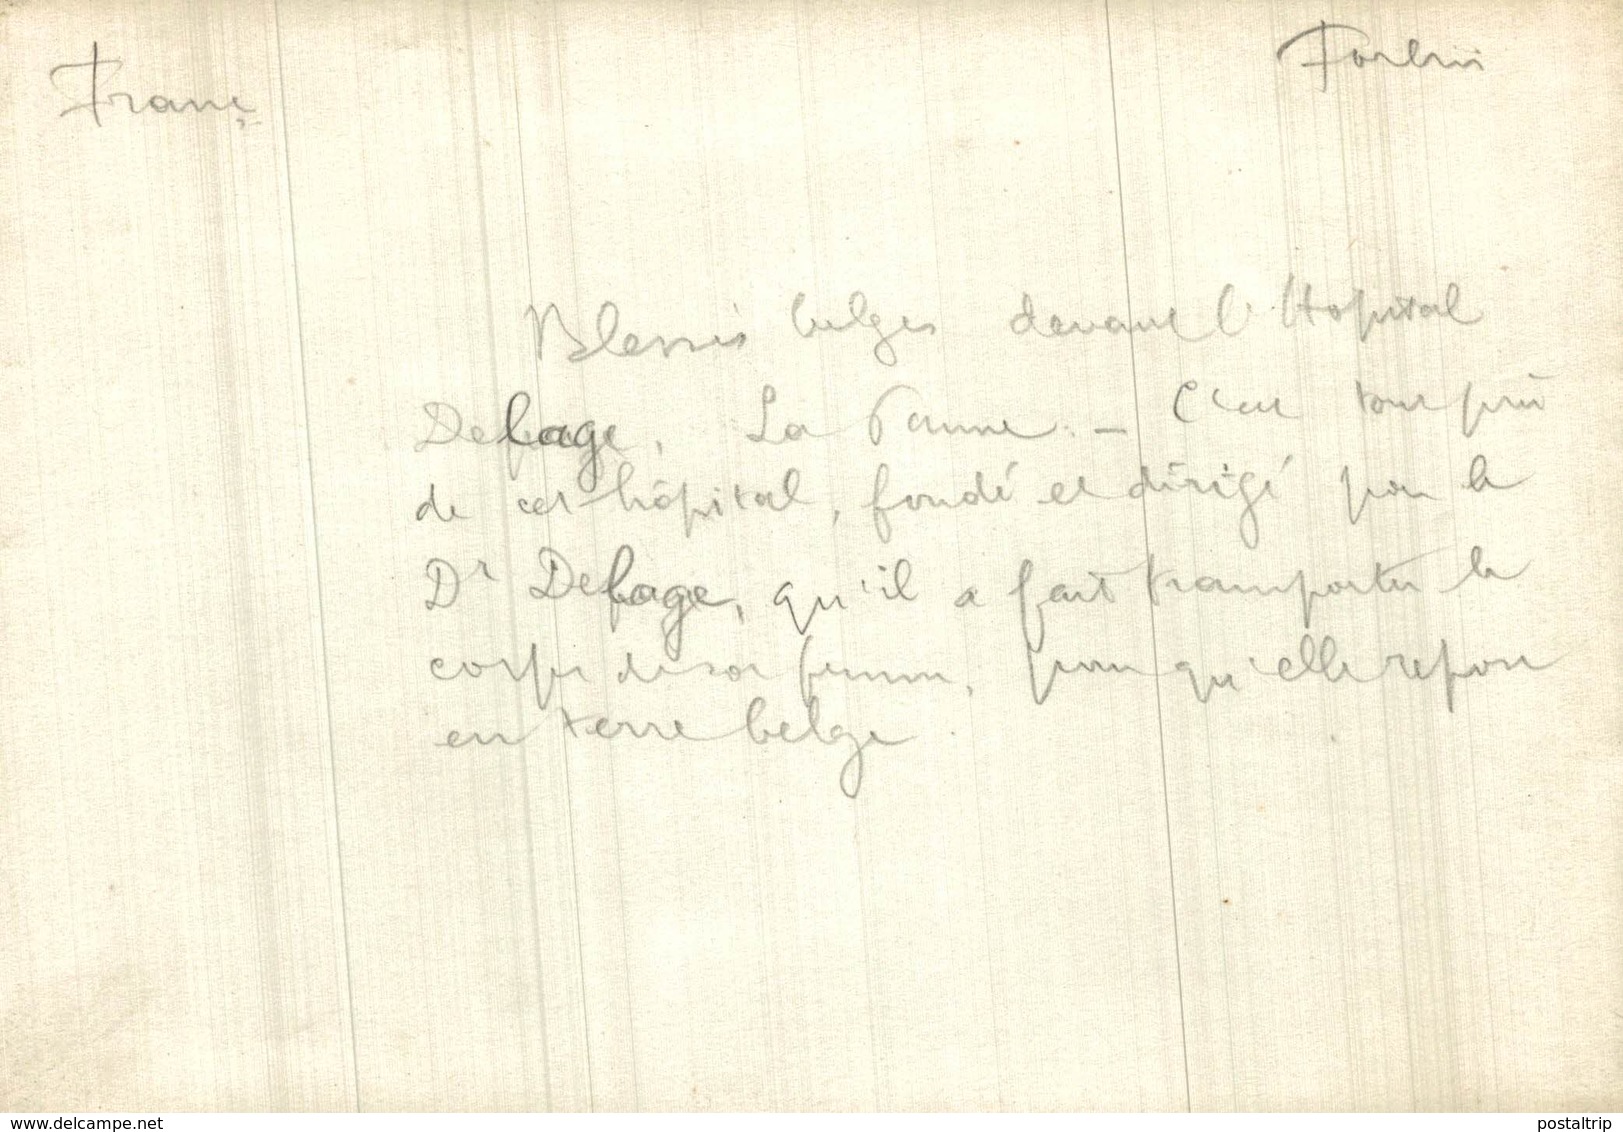 Franç
Forbin
Blessés belges devant l'Hopital
Defage, La Panne. - C'est tout près
de cet hôpital, fondé et dirigé par le
Dr Defage, qu'il a fait transporter le
corps de sa femme, pour qu'elle repose
en terre belge.
www.delcampe.net
postaltrip